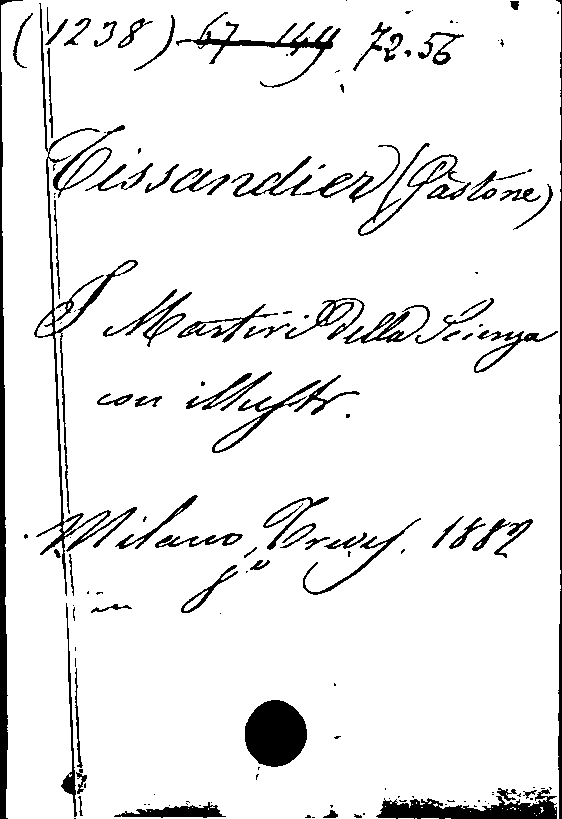 (1238) 67-144 72.56
Tissandier (Gastone)
I Martiri della Scienza
con illustr.
Milano, Treves. 1882
in 8º